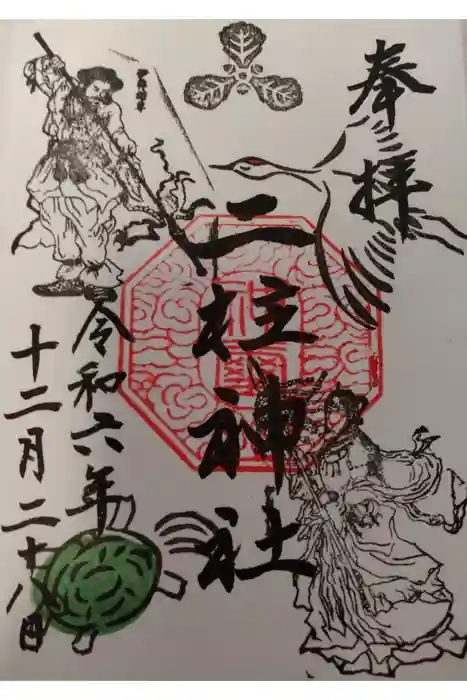 奉拝
二柱神社
令和六年
十二月二十八日